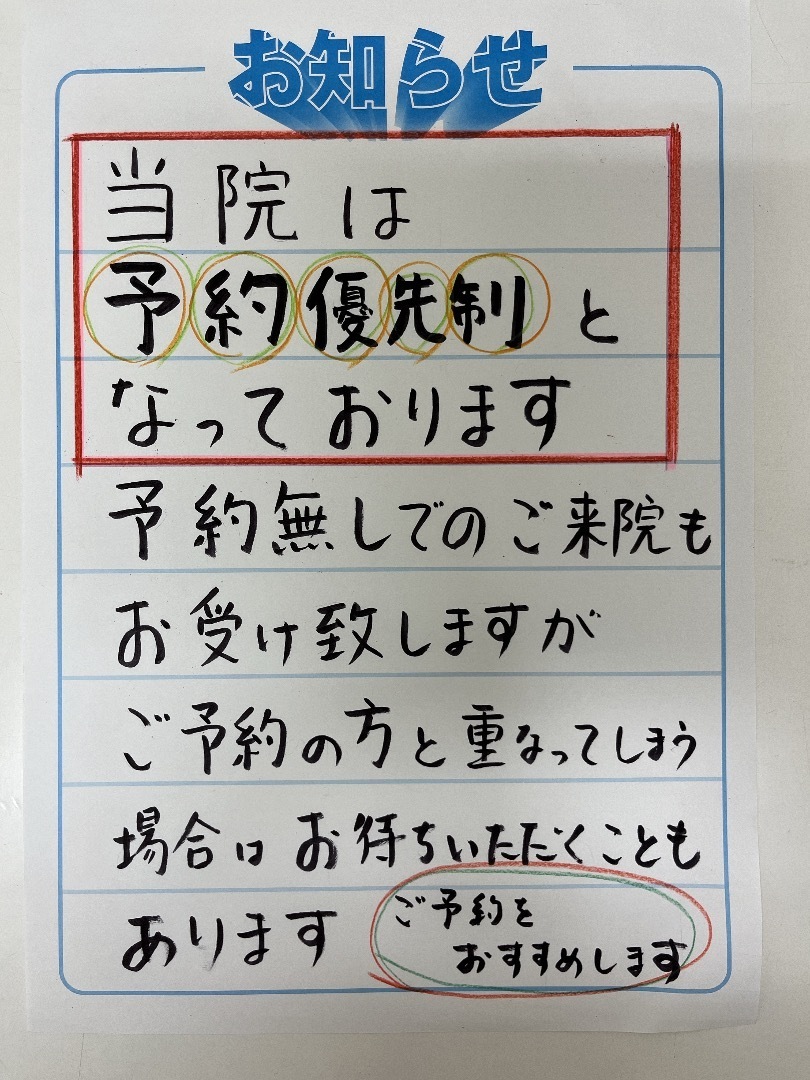 お知らせ
当院は
予約優先制と
なっております
予約無しでのご来院も
お受け致しますが
ご予約の方と重なってしまう
場合はお待ちいただくことも
あります
ご予約を
おすすめします